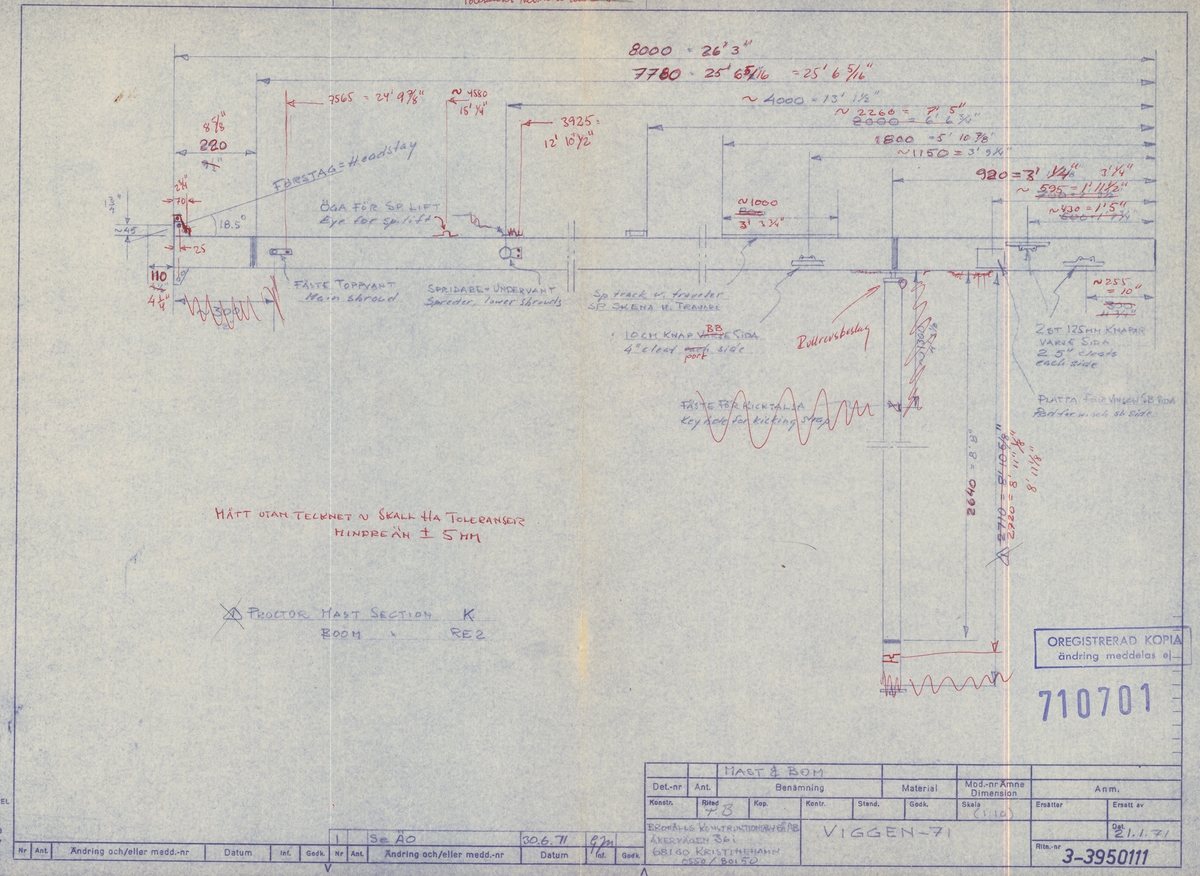 8000 = 26' 3"
7780 = 25' 6 5/16 = 25' 6 5/16"
7565 = 24' 9 7/8"
~ 4580
15' 1/4"
~ 4000 = 13' 1 1/2"
~ 2260 = 7' 5"
2000 = 6' 6 3/4"
3925 =
12' 10 1/2"
1800 = 5' 10 7/8"
~1150 = 3' 9 1/4"
8 5/8"
220
FÖRSTAG = Headstay
920 = 3' 1/4" 3' 1/4"
~ 595 = 1' 11 1/2"
~430 = 1' 5"
2 3/4"
70
1 3/4"
~45
18.5°
ÖGA FÖR SP LIFT
Eye for sp. lift
~1000
800
3' 3 1/4"
25
110
4 1/4"
300
FÄSTE TOPPVANT
Main shroud
SPRIDARE + UNDERVANT
Spreder, lower shrouds
Sp track w. traveler
SP SKENA M. TRAVARE
~255
= 10"
300
10 CM KNAP VARJE SIDA
BB
4" cleat each side
port
Rullrevsbeslag
2 ST 125 MM KNAPAR
VARJE SIDA
2 5" cleats
each side
FÄSTE FÖR KICKTALJA
Key hole for kicking strap
PLATTA FÖR VINSCH SB SIDA
Pad for winch sb side
2640 = 8' 8"
2710 = 8' 10 5/8"
2720 = 8' 11 1/8"
8' 11 1/8"
MÅTT UTAN TECKNET ~ SKALL HA TOLERANSER
MINDRE ÄN ± 5 MM
1 PROCTOR MAST SECTION K
BOOM " RE2
OREGISTRERAD KOPIA
ändring meddelas ej
710701
MAST & BOM
Det.-nr Ant. Benämning Material Mod.-nr Ämne Dimension Anm.
Konstr. Ritad Kop. Kontr. Stand. Godk. Skala Ersätter Ersatt av
(1:10)
BROHÄLLS KONSTRUKTIONSBYRÅ AB
ÅKERVÄGEN 36 i
68100 KRISTINEHAMN
0550/80150
VIGGEN-71
Dat. 21.1.71
Ritn.-nr
3-3950111
1 Se ÄO 30.6.71
Nr Ant. Ändring och/eller medd.-nr Datum Inf. Godk. Nr Ant. Ändring och/eller medd.-nr Datum Inf. Godk.